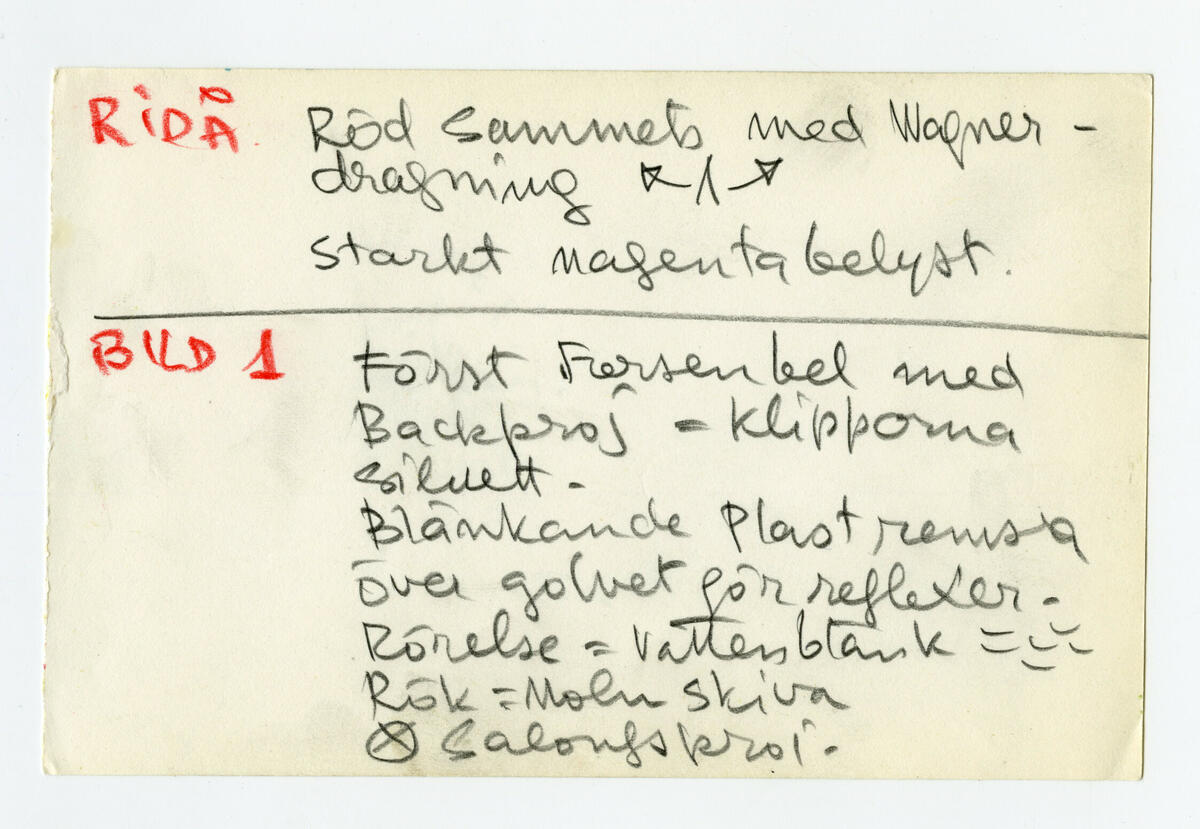 RIDÅ Röd Sammets med Wagner-
dragning
starkt magenta belyst.
BILD 1 Först Forsenbel med
Backproj = Klipporna
siluett -
Blänkande Plastremsa
över golvet gör reflexer.
Rörelse = Vattenblänk
Rök = Moln skiva
Salongsproj.